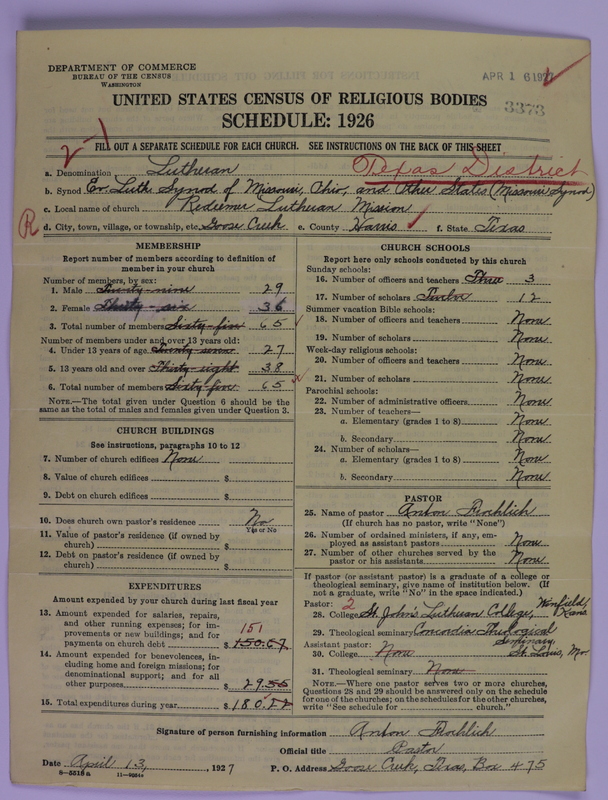 DEPARTMENT OF COMMERCE
BUREAU OF THE CENSUS
WASHINGTON
APR 16 1927
3373
UNITED STATES CENSUS OF RELIGIOUS BODIES
SCHEDULE: 1926
2-1
FILL OUT A SEPARATE SCHEDULE FOR EACH CHURCH. SEE INSTRUCTIONS ON THE BACK OF THIS SHEET
a. Denomination Lutheran Texas District
b. Synod Ev. Luth Synod of Missouri, Ohio, and Other States (Missouri Synod)
c. Local name of church Redeemer Lutheran Mission
R
d. City, town, village, or township, etc. Goose Creek e. County Harris f. State Texas
MEMBERSHIP
Report number of members according to definition of
member in your church
Number of members, by sex:
1. Male Twenty-nine 29
2. Female Thirty-six 36
3. Total number of members Sixty-five 65
Number of members under and over 13 years old:
4. Under 13 years of age Twenty-seven 27
5. 13 years old and over Thirty-eight 38
6. Total number of members Sixty-five 65
NOTE.—The total given under Question 6 should be the
same as the total of males and females given under Question 3.
CHURCH BUILDINGS
See instructions, paragraphs 10 to 12
7. Number of church edifices None
8. Value of church edifices $
9. Debt on church edifices $
10. Does church own pastor's residence No
Yes or No
11. Value of pastor's residence (if owned by
church) $
12. Debt on pastor's residence (if owned by
church) $
EXPENDITURES
Amount expended by your church during last fiscal year
13. Amount expended for salaries, repairs,
and other running expenses; for im-
provements or new buildings; and for
payments on church debt $ 150.67
151
14. Amount expended for benevolences, in-
cluding home and foreign missions; for
denominational support; and for all
other purposes $ 29.55
15. Total expenditures during year $ 180.22
CHURCH SCHOOLS
Report here only schools conducted by this church
Sunday schools:
16. Number of officers and teachers Three 3
17. Number of scholars Twelve 12
Summer vacation Bible schools:
18. Number of officers and teachers None
19. Number of scholars None
Week-day religious schools:
20. Number of officers and teachers None
21. Number of scholars None
Parochial schools:
22. Number of administrative officers None
23. Number of teachers—
a. Elementary (grades 1 to 8) None
b. Secondary None
24. Number of scholars—
a. Elementary (grades 1 to 8) None
b. Secondary None
PASTOR
25. Name of pastor Anton Frohlich
(If church has no pastor, write "None")
26. Number of ordained ministers, if any, em-
ployed as assistant pastors None
27. Number of other churches served by the
pastor or his assistants None
If pastor (or assistant pastor) is a graduate of a college or
theological seminary, give name of institution below. (If
not a graduate, write "No" in the space indicated.)
Pastor: 2
28. College St. John's Lutheran College, Winfield, Kans
29. Theological seminary Concordia Theological Seminary,
Assistant pastor: St. Louis, Mo
30. College None
31. Theological seminary None
NOTE.—Where one pastor serves two or more churches,
Questions 28 and 29 should be answered only on the schedule
for one of the churches; on the schedules for the other churches,
write "See schedule for church."
Signature of person furnishing information Anton Frohlich
Official title Pastor
Date April 13, 1927 P. O. Address Goose Creek, Texas, Box 475